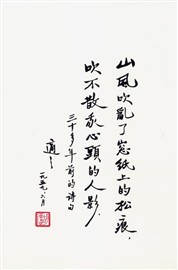 山風吹亂了窓紙上的松痕，
吹不散我心頭的人影．
三十多年前的詩句
適之